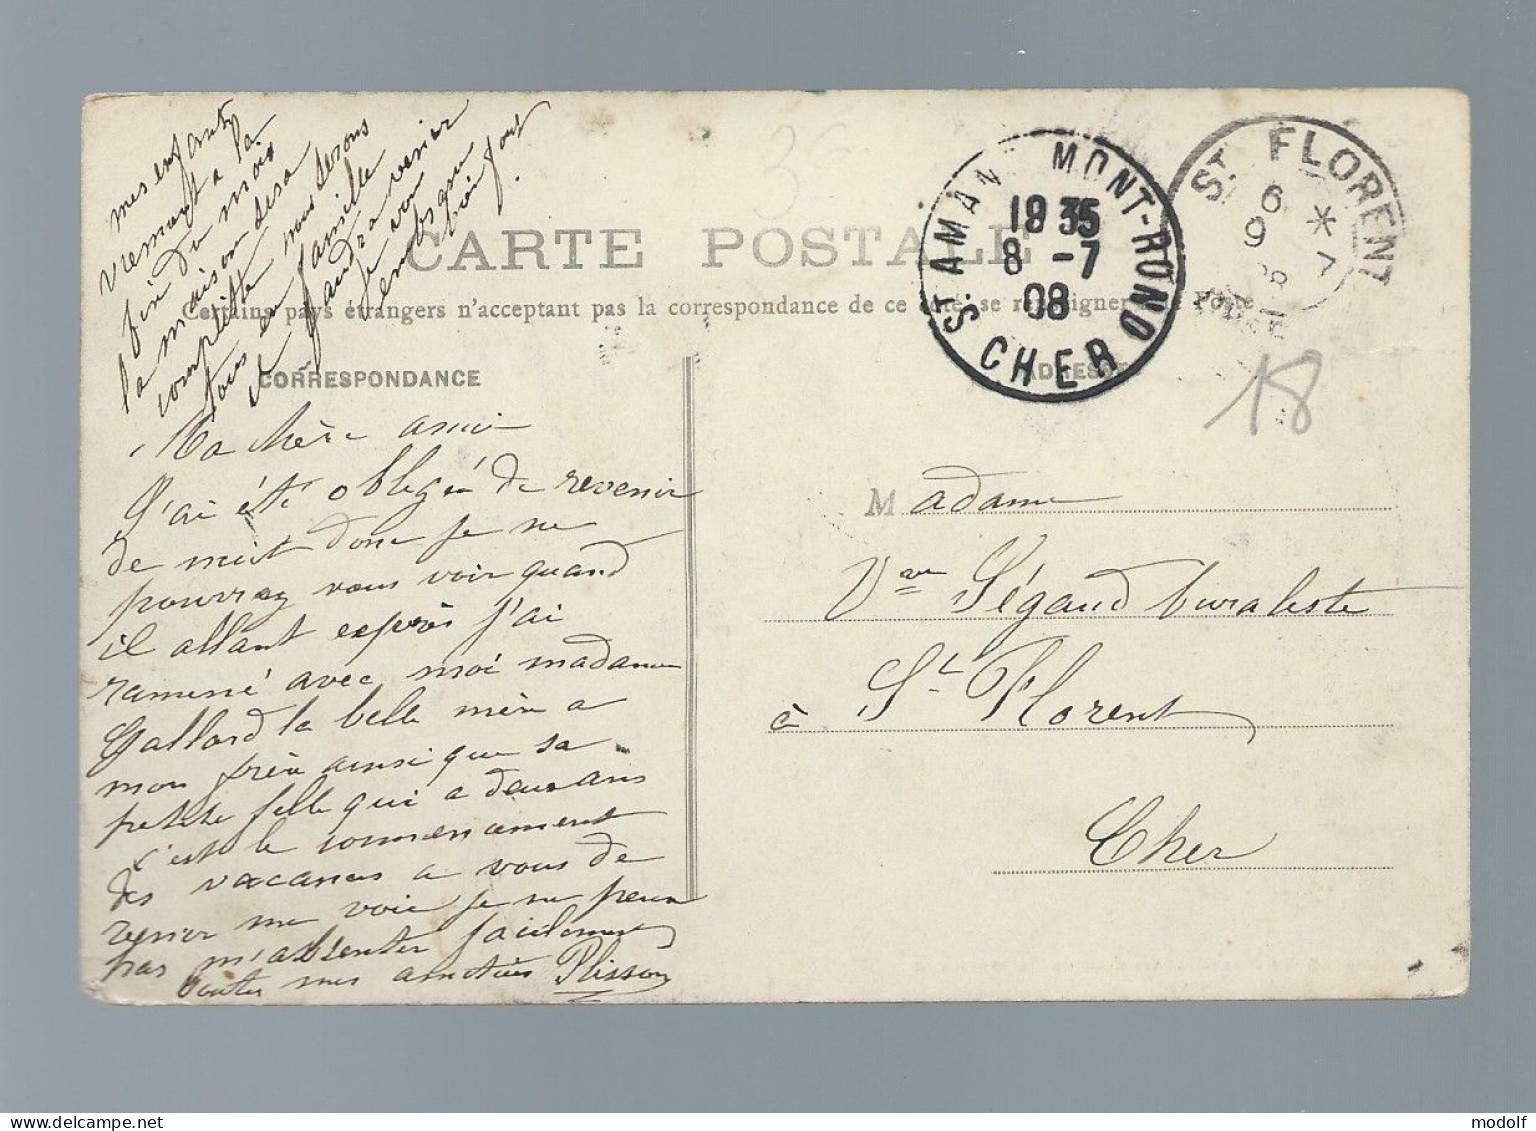 mes enfants
vienont a la
fin du mois
la maison sera
complette nous serons
tous en famille
il faudra venir
je vous
embs que
bien fort
CARTE POSTALE
Certains pays étrangers n'acceptent pas la correspondance de ce côté, se renseigner Poste
CORRESPONDANCE
ADRESSE
ST AMAN MONT-ROND
1835
8 -7
08
CHER
ST FLORENT
6 *
9 7
08
18
Ma chère amie
J'ai été obligée de revenir
de nuit donc je ne
pourrez vous voir quand
il allant exprès j'ai
ramené avec moi madame
Gallard la belle mère a
mon frère ainsi que sa
petite fille qui a deux ans
c'est le commencement
des vacances a vous de
venir me voir je ne peux
pas m'absenter facilement
toutes mes amitiés Plisson
Madame
Vve Ségaud buraliste
à St Florent
Cher
modolf